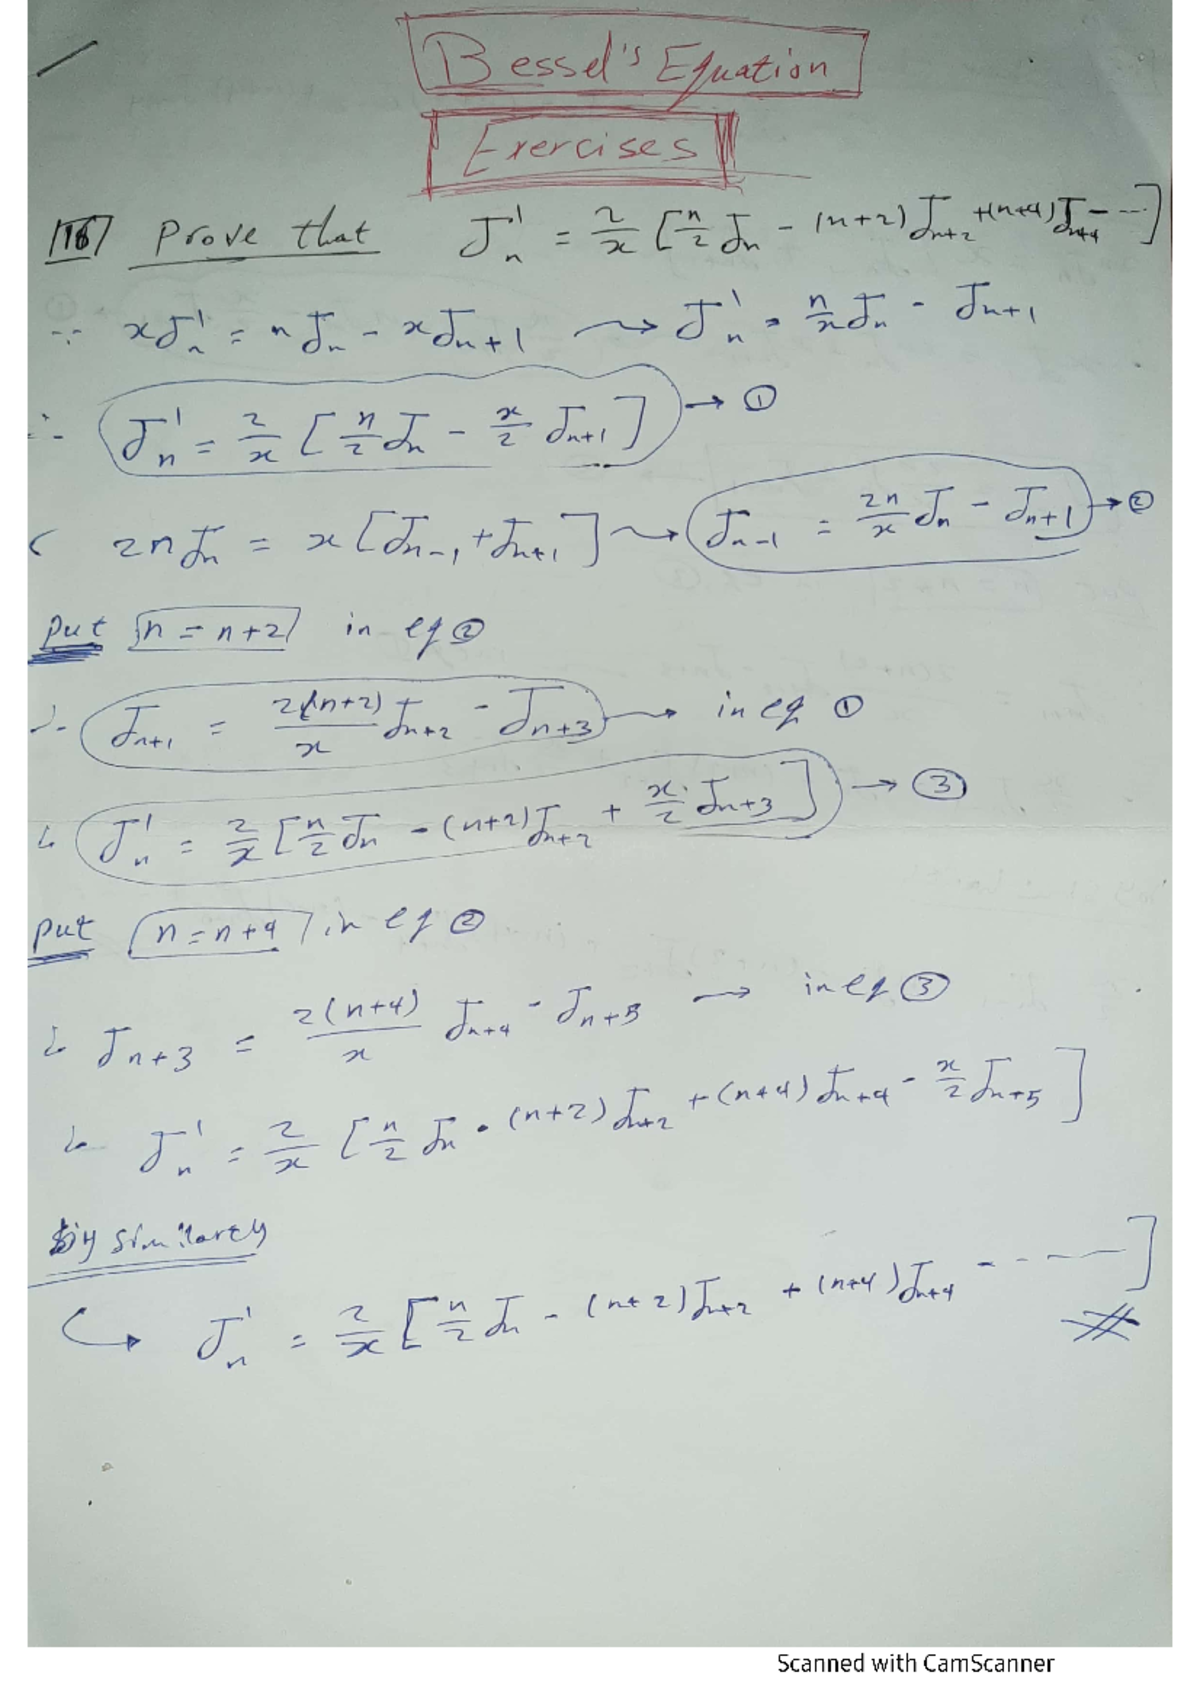 Bessel's Equation
Exercises
16 Prove that J'_n = 2/x [n/2 J_n - (n+2) J_{n+2} + (n+4) J_{n+4} - ---]
∵ xJ'_n = nJ_n - xJ_{n+1} ⟿ J'_n = n/x J_n - J_{n+1}
∴ J'_n = 2/x [n/2 J_n - x/2 J_{n+1}] → ①
2nJ_n = x[J_{n-1} + J_{n+1}] ⟿ J_{n-1} = 2n/x J_n - J_{n+1} → ②
Put n = n+2 in eq ②
∴ J_{n+1} = 2(n+2)/x J_{n+2} - J_{n+3} → in eq ①
∴ J'_n = 2/x [n/2 J_n - (n+2)J_{n+2} + x/2 J_{n+3}] → ③
Put n=n+4 in eq ②
∴ J_{n+3} = 2(n+4)/x J_{n+4} - J_{n+5} → in eq ③
∴ J'_n = 2/x [n/2 J_n - (n+2) J_{n+2} + (n+4) J_{n+4} - x/2 J_{n+5}]
by similarly
↪ J'_n = 2/x [n/2 J_n - (n+2)J_{n+2} + (n+4)J_{n+4} - - - —]
#
Scanned with CamScanner